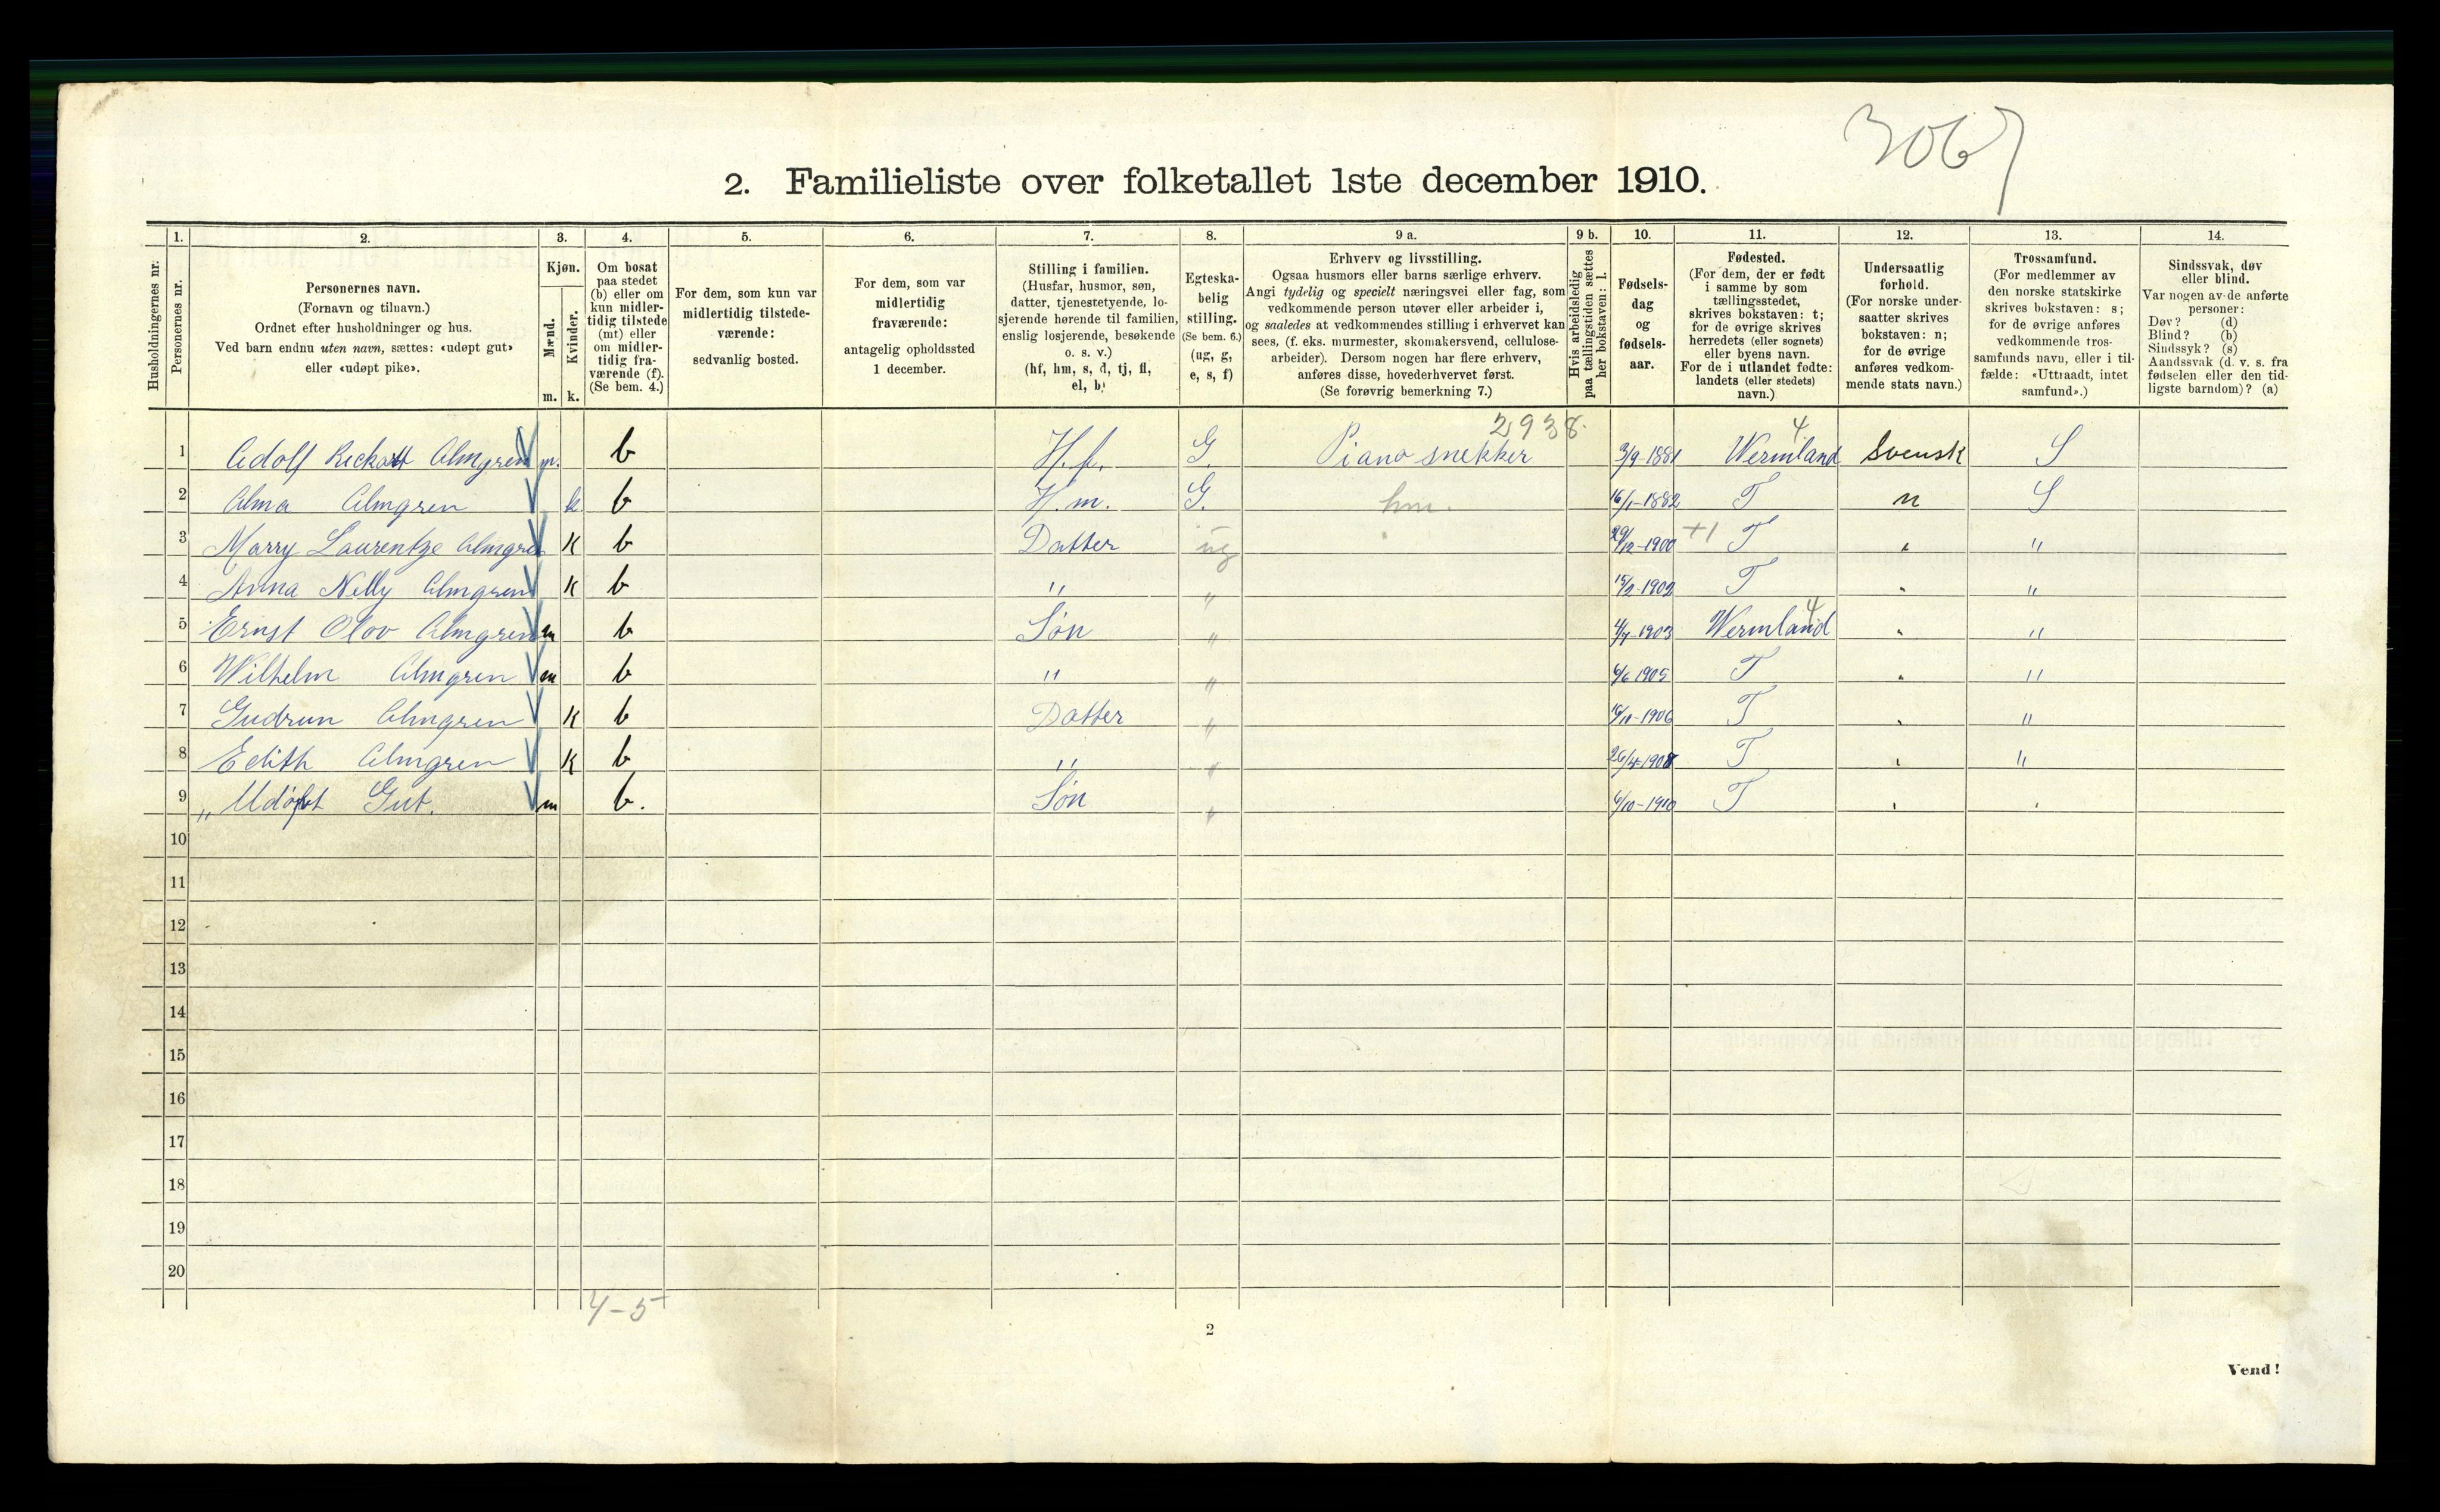 3067
2. Familieliste over folketallet 1ste december 1910.
Husholdningernes nr.
1. Personernes nr.
2. Personernes navn.
(Fornavn og tilnavn.)
Ordnet efter husholdninger og hus.
Ved barn endnu uten navn, sættes: «udøpt gut»
eller «udøpt pike».
3. Kjøn.
Mænd. m.
Kvinder. k.
4. Om bosat
paa stedet
(b) eller om
kun midler-
tidig tilstede
(mt) eller
om midler-
tidig fra-
værende (f).
(Se bem. 4.)
5. For dem, som kun var
midlertidig tilstede-
værende:
sedvanlig bosted.
6. For dem, som var
midlertidig
fraværende:
antagelig opholdssted
1 december.
7. Stilling i familien.
(Husfar, husmor, søn,
datter, tjenestetyende, lo-
sjerende hørende til familien,
enslig losjerende, besøkende
o. s. v.)
(hf, hm, s, d, tj, fl,
el, b)
8. Egteska-
belig
stilling.
(Se bem. 6.)
(ug, g,
e, s, f)
9 a. Erhverv og livsstilling.
Ogsaa husmors eller barns særlige erhverv.
Angi tydelig og specielt næringsvei eller fag, som
vedkommende person utøver eller arbeider i,
og saaledes at vedkommendes stilling i erhvervet kan
sees, (f. eks. murmester, skomakersvend, cellulose-
arbeider). Dersom nogen har flere erhverv,
anføres disse, hovederhvervet først.
(Se forøvrig bemerkning 7.)
9 b. Hvis arbeidsledig
paa tællingstiden sættes
her bokstaven: l.
10. Fødsels-
dag
og
fødsels-
aar.
11. Fødested.
(For dem, der er født
i samme by som
tællingsstedet,
skrives bokstaven: t;
for de øvrige skrives
herredets (eller sognets)
eller byens navn.
For de i utlandet fødte:
landets (eller stedets)
navn.)
12. Undersaatlig
forhold.
(For norske under-
saatter skrives
bokstaven: n;
for de øvrige
anføres vedkom-
mende stats navn.)
13. Trossamfund.
(For medlemmer av
den norske statskirke
skrives bokstaven: s;
for de øvrige anføres
vedkommende tros-
samfunds navn, eller i til-
fælde: «Uttraadt, intet
samfund».)
14. Sindssvak, døv
eller blind.
Var nogen av de anførte
personer:
Døv? (d)
Blind? (b)
Sindssyk? (s)
Aandssvak (d. v. s. fra
fødselen eller den tid-
ligste barndom)? (a)
2938. 4
1 Adolf Almgren m. b H.f. G. Piano snekker 3/9-1881 Wermland Svensk S
2 Alma Almgren k b H.m. G. hm. 16/1-1882 T n S
3 Marry Laurentze Almgren K b Datter ug 29/12-1900 +1 T " "
4 Anna Nelly Almgren K b " " 15/2-1902 T " "
5 Ernst Olov Almgren m b Søn " 4/4-1903 Wermland 4 " "
6 Wilhelm Almgren m b " " 6/6 1905 T " "
7 Gudrun Almgren K b Datter " 16/11-1906 T " "
8 Edith Almgren K b " " 26/4-1908 T " "
9 „Udøbt Gut. m b. Søn " 6/10-1910 T " "
10
11
12
13
14
15
16
17
18
19
20
4-5
2
Vend!